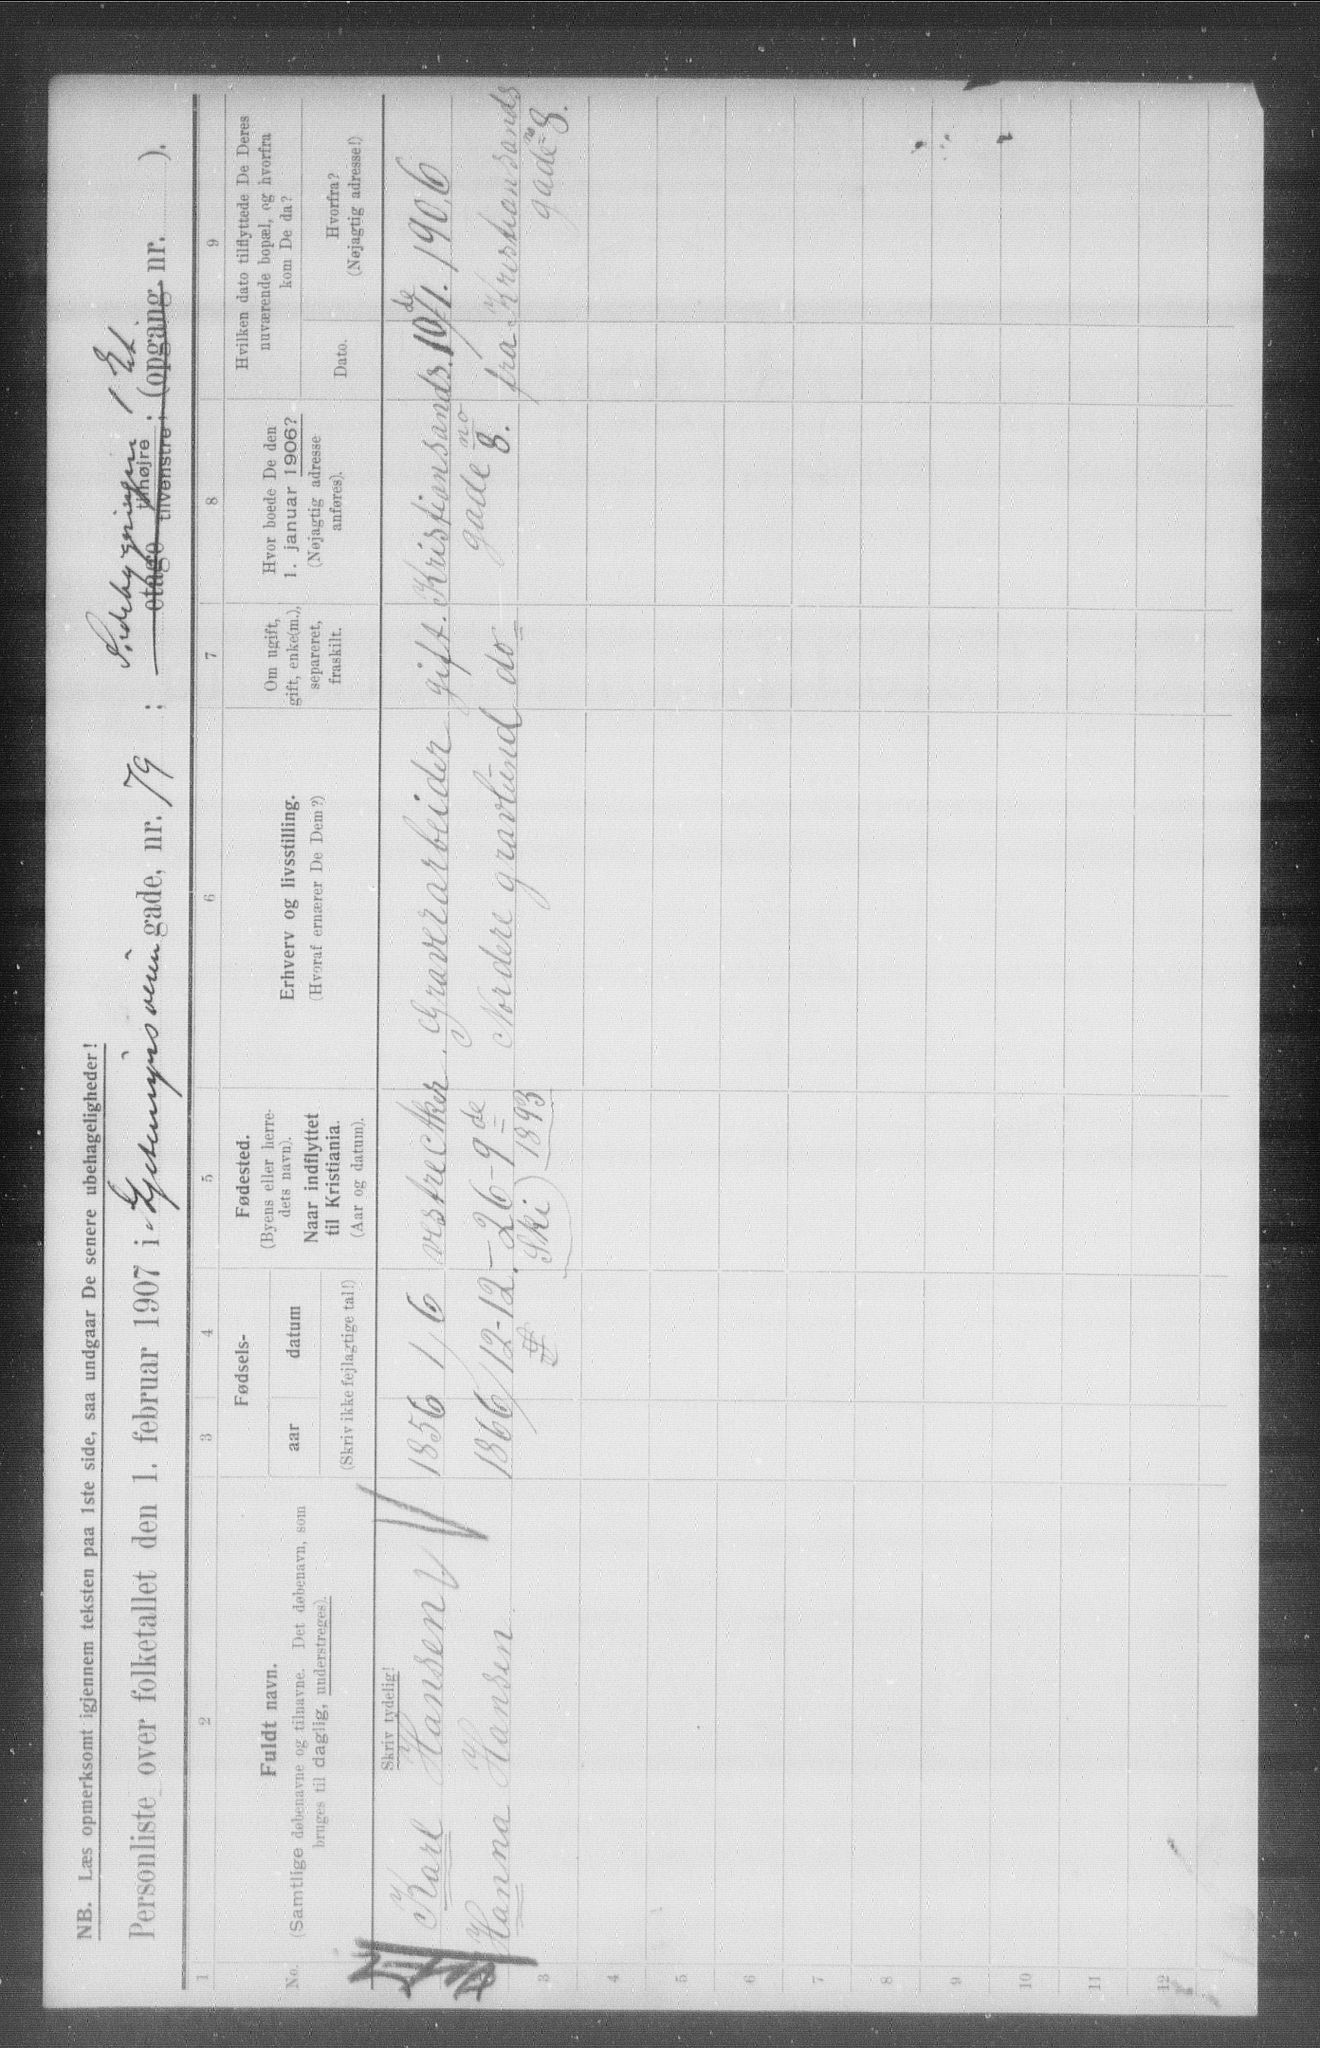 NB. Læs opmerksomt igjennem teksten paa 1ste side, saa undgaar De senere ubehageligheder!
Personliste over folketallet den 1. februar 1907 i gade, nr. 79 ; Sidebygningen 1 Et.
etage tilhøjre tilvenstre ; (opgang nr. ).
1 2 3 4 5 6 7 8 9
No.
Fuldt navn.
(Samtlige døbenavne og tilnavne. Det døbenavn, som
bruges til daglig, understreges).
Fødsels-
aar datum
(Skriv ikke fejlagtige tal!)
Fødested.
(Byens eller herre-
dets navn).
Naar indflyttet
til Kristiania.
(Aar og datum).
Erhverv og livsstilling.
(Hvoraf ernærer De Dem?)
Om ugift,
gift, enke(m.),
separeret,
fraskilt.
Hvor boede De den
1. januar 1906?
(Nøjagtig adresse
anføres).
Hvilken dato tilflyttede De Deres
nuværende bopæl, og hvorfra
kom De da?
Dato.
Hvorfra?
(Nøjagtig adresse!)
Skriv tydelig!
Karl Hansen 1856 1/6 Graverarbeider gift. Kristiansands. 10/1. de 1906
Hanna Hansen. 1866 12-12. – 26-9 de Nordere gravlund do gade no 8. fra Kristiansands
Ski 1893 gade no 8.
3
4
5
6
7
8
9
10
11
12